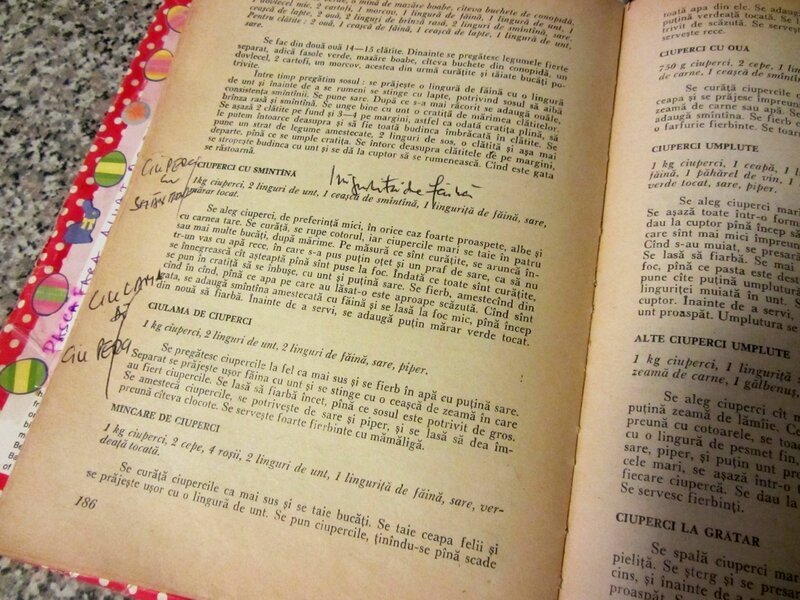 1 dovlecel mic, 2 cartofi, 1 morcov, 1 lingură de făină, 1 lingură de unt, 1
ceașcă de lapte, 2 ouă, 2 linguri de brînză rasă, 2 linguri de smîntînă, sare.
Pentru clătite: 2 ouă, 1 ceașcă de făină, 1 ceașcă de lapte, 1 lingură de unt,
Se fac din două ouă 14—15 clătite. Dinainte se pregătesc legumele fierte
separat, adică fasole verde, mazăre boabe, cîteva buchete de conopidă, un
dovlecel, 2 cartofi, un morcov, acestea din urmă curățite și tăiate bucăți po-
trivite.
Între timp pregătim sosul: se prăjește o lingură de făină cu o lingură
de unt și înainte de a se rumeni se stinge cu lapte, potrivind sosul să aibă
consistența smîntînii. Se pune sare. După ce s-a mai răcorit se adaugă ouăle,
brînza rasă și smîntînă. Se unge bine cu unt o cratiță de mărimea clătitelor.
Se așază 2 clătite pe fund și 3—4 pe margini, astfel ca odată cratița plină, să
le putem întoarce deasupra și să fie toată budinca îmbrăcată în clătite. Se
pune un strat de legume amestecate, 2 linguri de sos, o clătită și așa mai
departe, pînă ce se umple cratița. Se întorc deasupra clătitele de pe margini,
se stropește budinca cu unt și se dă la cuptor să se rumenească. Cînd este gata
se răstoarnă.
CIUPERCI CU SMÎNTÎNĂ
1 kg ciuperci, 2 linguri de unt, 1 ceașcă de smîntînă, 1 linguriță de făină, sare,
mărar tocat.
Se aleg ciuperci, de preferință mici, în orice caz foarte proaspete, albe și
cu carnea tare. Se curăță, se rupe cotorul, iar ciupercile mari se taie în patru
sau mai multe bucăți, după mărime. Pe măsură ce sînt curățite, se aruncă în-
tr-un vas cu apă rece, în care s-a pus puțin oțet și un praf de sare, ca să nu
se înnegrească cît așteaptă pînă sînt puse la foc. Îndată ce toate sînt curățite,
se pun în cratiță să se înbușe, cu unt și puțină sare. Se fierb, amestecînd din
cînd în cînd, pînă ce apa pe care au lăsat-o este aproape scăzută. Cînd sînt
gata, se adaugă smîntîna amestecată cu făină și se lasă la foc mic, pînă încep
din nou să fiarbă. Înainte de a servi, se adaugă puțin mărar verde tocat.
CIULAMA DE CIUPERCI
1 kg ciuperci, 2 linguri de unt, 2 linguri de făină, sare, piper.
Se pregătesc ciupercile la fel ca mai sus și se fierb în apă cu puțină sare.
Separat se prăjește ușor făina cu unt și se stinge cu o ceașcă de zeamă în care
au fiert ciupercile. Se lasă să fiarbă încet, pînă ce sosul este potrivit de gros.
Se amestecă ciupercile, se potrivește de sare și piper, și se lasă să dea îm-
preună cîteva clocote. Se servește foarte fierbinte cu mămăligă.
MÎNCARE DE CIUPERCI
1 kg ciuperci, 2 cepe, 4 roșii, 2 linguri de unt, 1 linguriță de făină, sare, ver-
deață tocată.
Se curăță ciupercile ca mai sus și se taie bucăți. Se taie ceapa felii și
se prăjește ușor cu o lingură de unt. Se pun ciupercile, ținîndu-se pînă scade
186
CIUPERCI
cu
CIULAMA
DE
CIUPERCI
toată apa din ele. Se adaug
puțină verdeață tocată. Se
trivit de scăzută. Se serveș
servește rece.
CIUPERCI CU OUĂ
750 g ciuperci, 2 cepe, 1 lin
de carne, 1 ceașcă de smîntî
Se curăță ciuper
ceapa și se prăjesc împreun
zeamă de carne sau apă. Se
adaugă smîntîna. Se fierb
o farfurie fierbinte. Se toar
CIUPERCI UMPLUTE
1 kg ciuperci, 1 ceapă, 1 l
1 păhărel de vin, 1
verde tocat, sare, piper.
Se aleg ciuperci mari
Se așază toate într-o form
dau la cuptor pînă încep s
care sînt mai mici împreun
Cînd s-au muiat, se presară
Se lasă să fiarbă. Se mai
foc, pînă ce pasta este dest
pune cîte puțină umplutur
linguriței muiată în unt. S
cuptor. Înainte de a servi,
unt proaspăt. Umplutura se
ALTE CIUPERCI UMPLUTE
1 kg ciuperci, 1 linguriță
zeamă de carne, 1 gălbenuș,
Se aleg ciuperci cît m
puțină zeamă de lămîie. Ce
preună cu cotoarele, se toa
cu o lingură de pesmet fin,
sare, piper, și puțin unt pr
cele mari, se așază într-o
fiecare ciupercă. Se dau la
Se servesc fierbinți.
CIUPERCI LA GRĂTAR
Se spală ciuperci mar
pieliță. Se șterg și se presa
cins, și înainte de a
proaspăt. Se